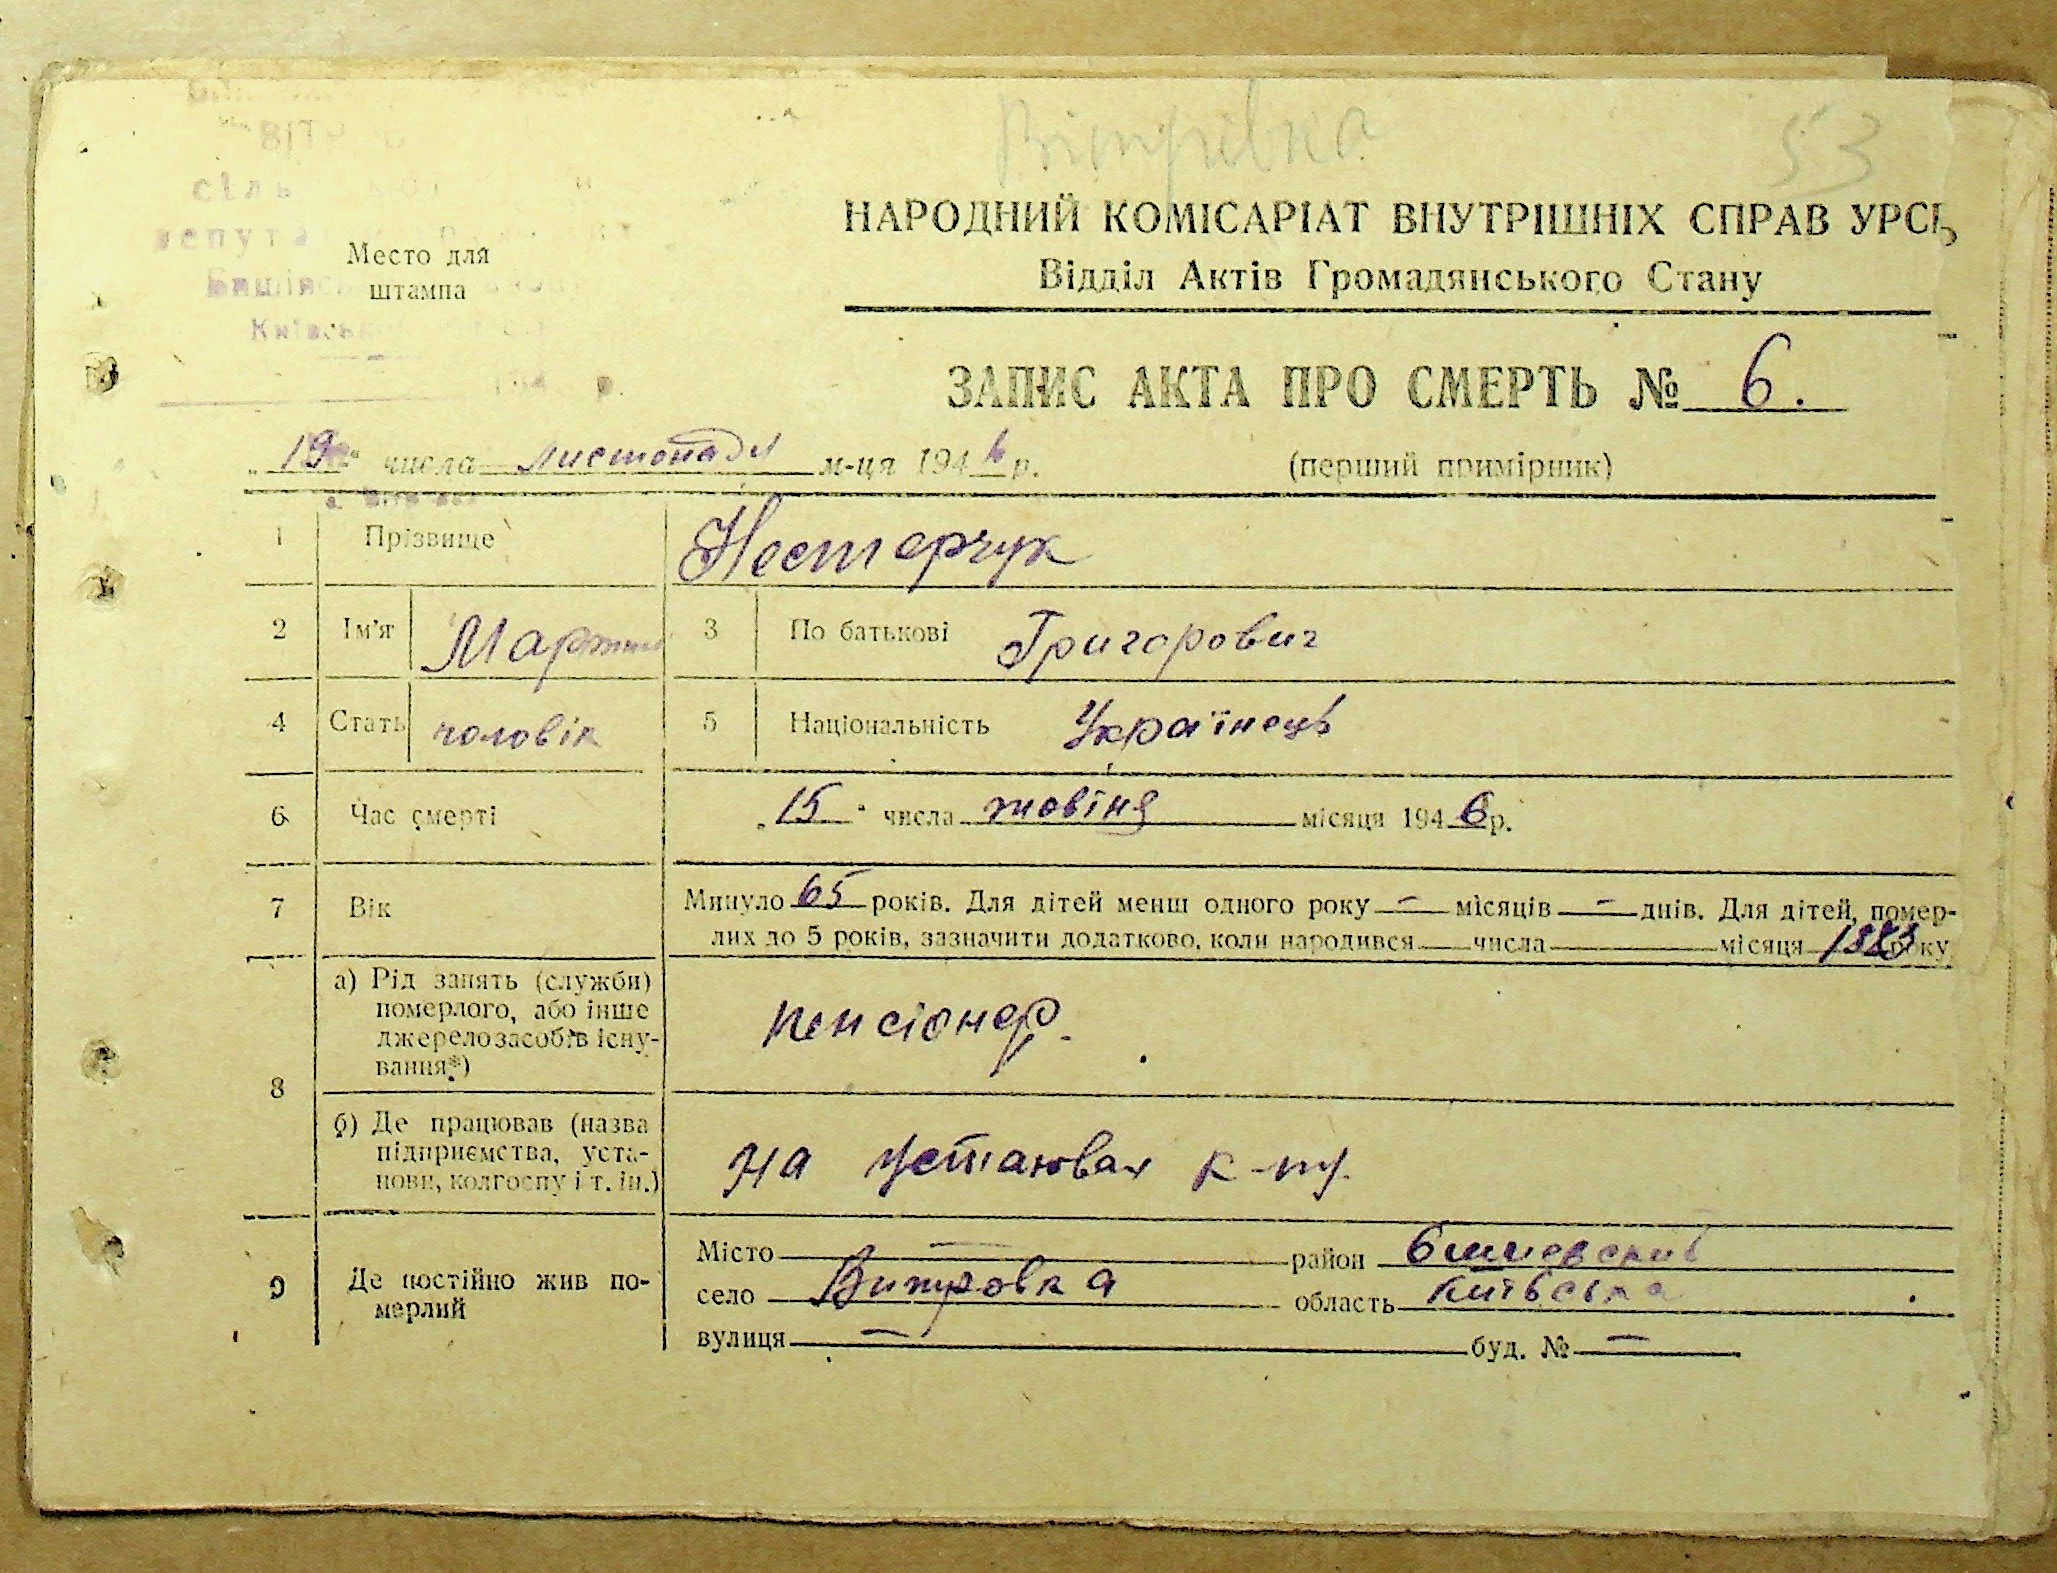 Вітрівка 53
НАРОДНИЙ КОМІСАРІАТ ВНУТРІШНІХ СПРАВ УРСР
Відділ Актів Громадянського Стану
Место для
штампа
ЗАПИС АКТА ПРО СМЕРТЬ № 6.
„19“ числа листопада м-ця 1946 р. (перший примірник)
1 Прізвище Нестерчук
2 Ім'я Мартин 3 По батькові Григорович
4 Стать чоловік 5 Національність Українець
6 Час смерті „15“ числа жовтня місяця 1946 р.
7 Вік Минуло 65 років. Для дітей менш одного року — місяців — днів. Для дітей, помер-
лих до 5 років, зазначити додатково, коли народився числа місяця 1883 року
8 а) Рід занять (служби)
померлого, або інше
джерело засобів існу-
вання*)
пенсіонер.
б) Де працював (назва
підприємства, уста-
нови, колгоспу і т. ін.)
на
9 Де постійно жив по-
мерлий
Місто — район
село Витровка область Київська
вулиця — буд. № —